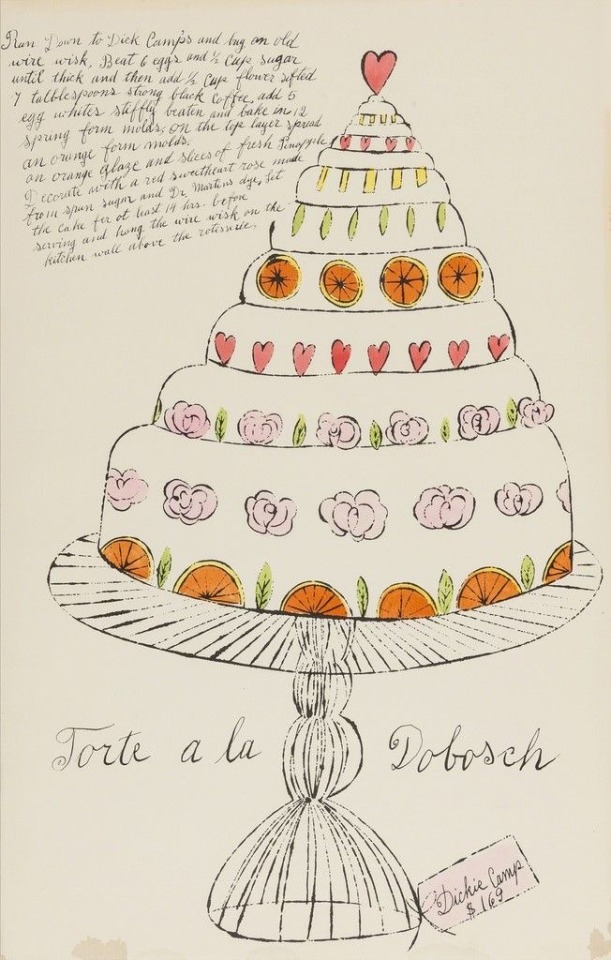 Run Down to Dick Camps and bug an old
wire wisk. Beat 6 eggs and ½ Cup sugar
until thick and then add ½ Cup flower sifted
7 talblespoons strong black Coffee, add 5
egg whites stiffly beaten and bake in 12
spring form molds. on the top layer spread
an orange form molds.
an orange glaze and slices of fresh Pineapple
Decorate with a red sweetheart rose made
from spun sugar and Dr. Martins dye, Set
the cake fer at least 14 hrs. before
serving and hang the wire wisk on the
kitchen wall above the rotesserie.
Torte a la Dobosch
Dickie Camp
$ 1.69